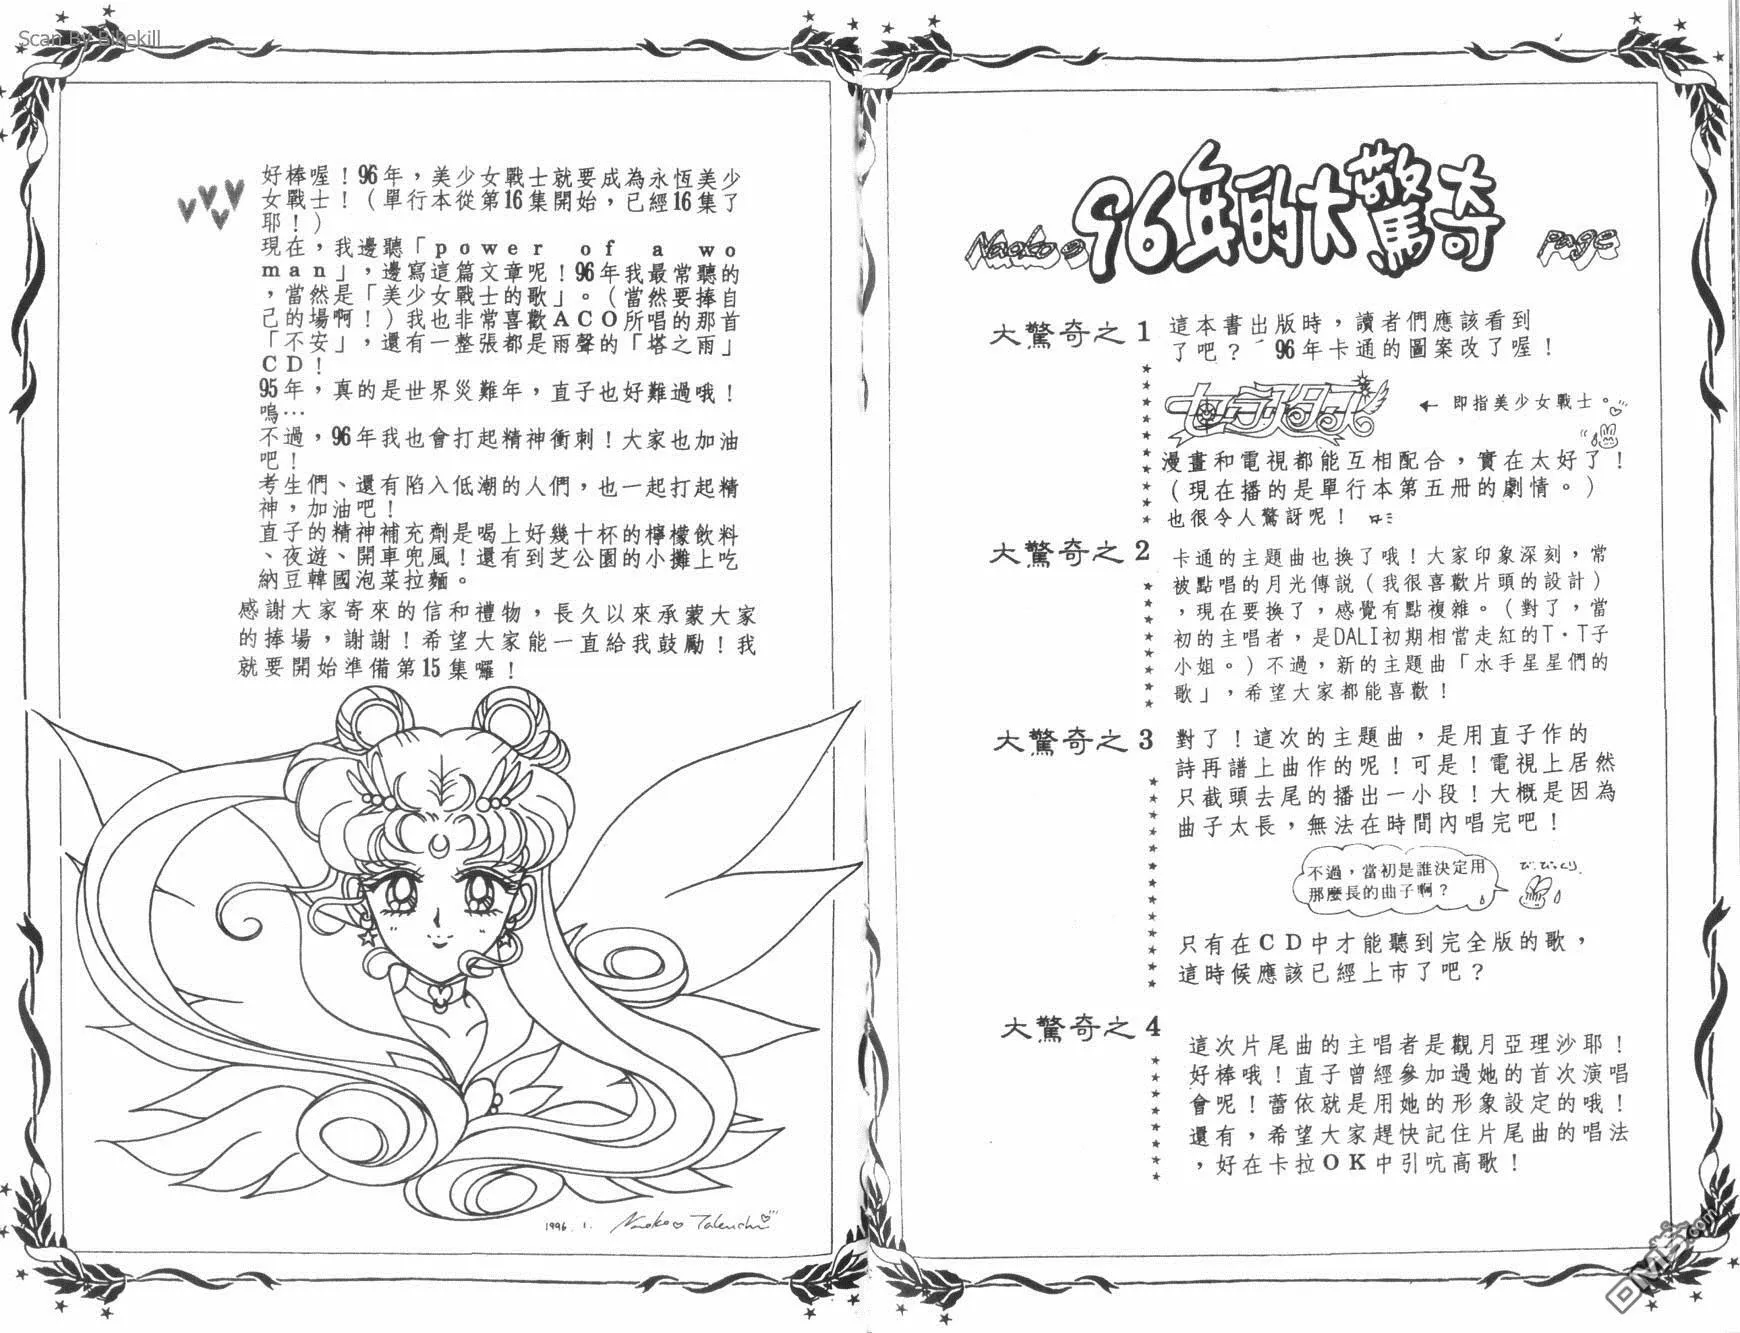 Scan By Bikekill
Naoko's 96年的大驚奇 Page
大驚奇之1
這本書出版時，讀者們應該看到
了吧？96年卡通的圖案改了喔！
← 即指美少女戰士。
漫畫和電視都能互相配合，實在太好了！
（現在播的是單行本第五冊的劇情。）
也很令人驚訝呢！
大驚奇之2
卡通的主題曲也換了哦！大家印象深刻，常
被點唱的月光傳說（我很喜歡片頭的設計）
，現在要換了，感覺有點複雜。（對了，當
初的主唱者，是DALI初期相當走紅的T・T子
小姐。）不過，新的主題曲「水手星星們的
歌」，希望大家都能喜歡！
大驚奇之3
對了！這次的主題曲，是用直子作的
詩再譜上曲作的呢！可是！電視上居然
只截頭去尾的播出一小段！大概是因為
曲子太長，無法在時間內唱完吧！
不過，當初是誰決定用
那麼長的曲子啊？
びっくり
只有在CD中才能聽到完全版的歌，
這時候應該已經上市了吧？
大驚奇之4
這次片尾曲的主唱者是觀月亞理沙耶！
好棒哦！直子曾經參加過她的首次演唱
會呢！蕾依就是用她的形象設定的哦！
還有，希望大家趕快記住片尾曲的唱法
，好在卡拉OK中引吭高歌！
好棒喔！96年，美少女戰士就要成為永恆美少
女戰士！（單行本從第16集開始，已經16集了
耶！）
現在，我邊聽「power of a wo
man」，邊寫這篇文章呢！96年我最常聽的
，當然是「美少女戰士的歌」。（當然要捧自
己的場啊！）我也非常喜歡ACO所唱的那首
「不安」，還有一整張都是雨聲的「塔之雨」
CD！
95年，真的是世界災難年，直子也好難過哦！
嗚…
不過，96年我也會打起精神衝刺！大家也加油
吧！
考生們、還有陷入低潮的人們，也一起打起精
神，加油吧！
直子的精神補充劑是喝上好幾十杯的檸檬飲料
、夜遊、開車兜風！還有到芝公園的小攤上吃
納豆韓國泡菜拉麵。
感謝大家寄來的信和禮物，長久以來承蒙大家
的捧場，謝謝！希望大家能一直給我鼓勵！我
就要開始準備第15集囉！
1996. 1. Naoko Takeuchi